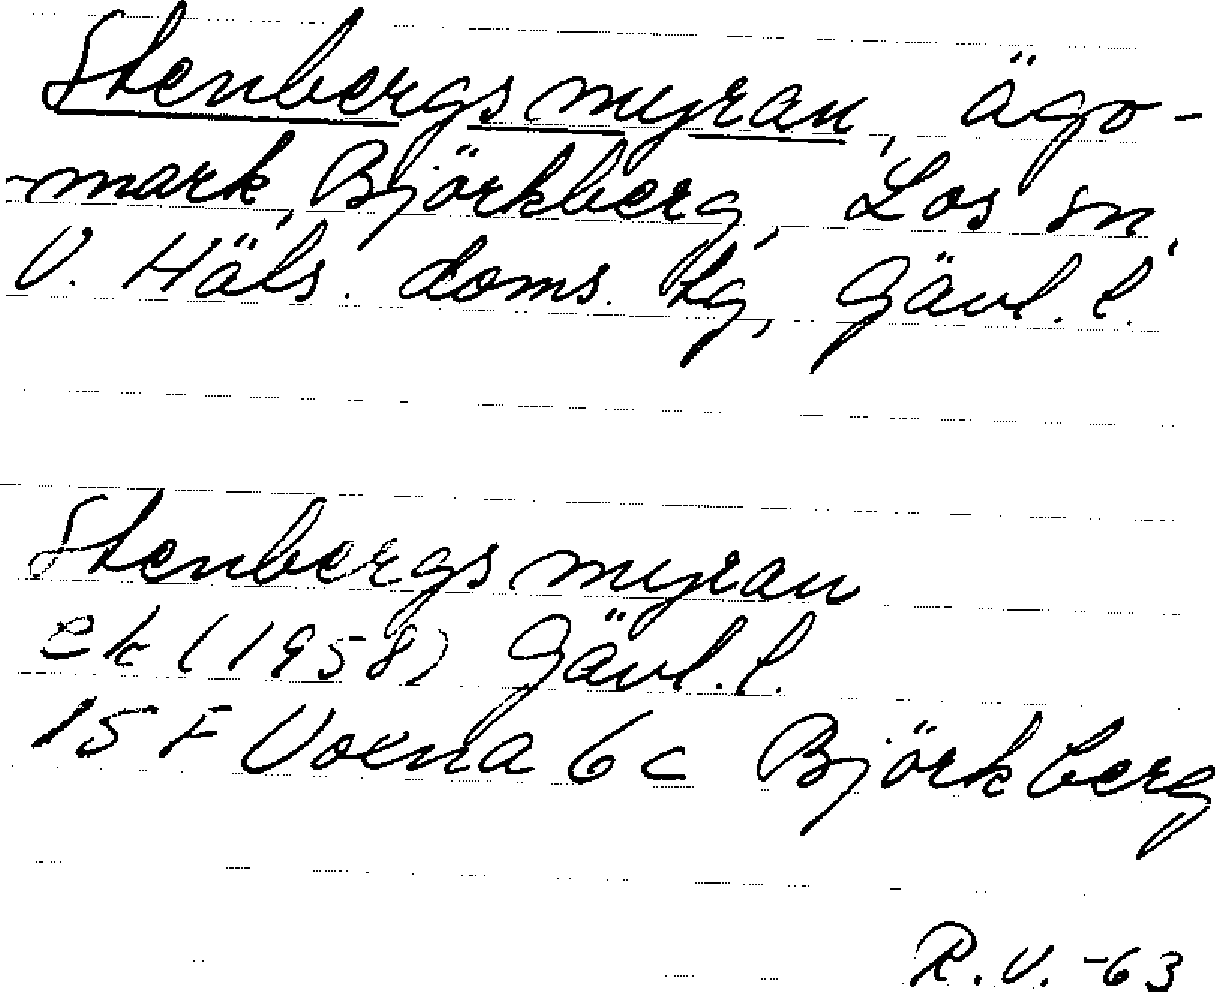 Stenbergsmyran, ägo-
-mark, Björkberg, Los sn,
V. Häls. doms. hg, Gävl. l.
Stenbergsmyran
ek (1958) Gävl. l.
15 F Voxna 6c Björkberg
R.V. -63